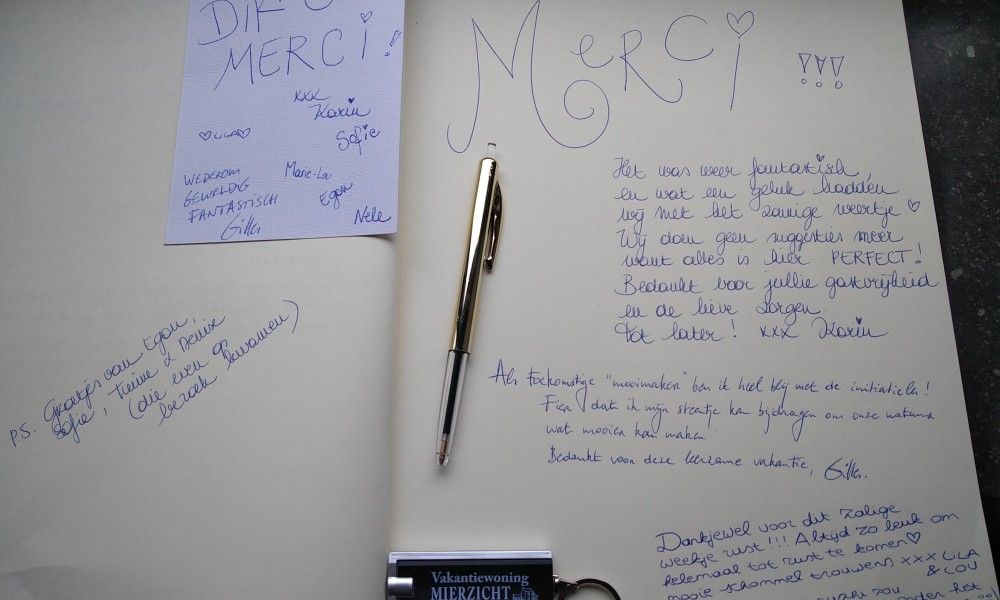 DIKKE
MERCI!
xxx
Karin
♡LILA♡
Sofie
Marie-Lou
WEDEROM
GEWELDIG
FANTASTISCH
Gilles
Egon
Nele
P.S. Groetjes van Egon,
Sofie, Tinne & Denise
(die even op
bezoek kwamen)
Merci !!!
Het was weer fantastisch
en wat een geluk hadden
wij met het zonnige weertje ♡
Wij doen geen suggesties meer
want alles is hier PERFECT!
Bedankt voor jullie gastvrijheid
en de lieve zorgen.
Tot later! xxx Karin
Als toekomstige "mooimaker" ben ik heel blij met de initiatieven!
Fier dat ik mijn steentje kan bijdragen om onze natuur
wat mooier kan maken.
Bedankt voor deze leerzame vakantie, Gilles.
Dankjewel voor dit zalige
weekje rust!!! Altijd zo leuk om
helemaal tot rust te komen♡
mooie schommel trouwens xxx LILA
& LOU
zou
onder het
Vakantiewoning
MIERZICHT